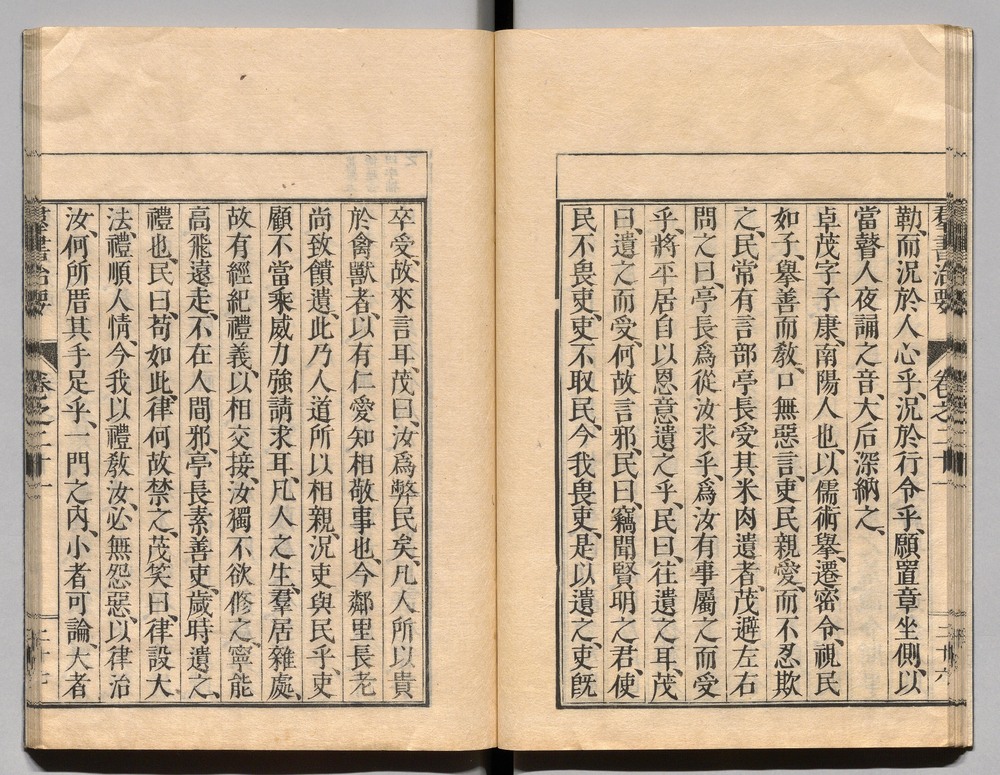 勒、而況於人心乎、況於行令乎、願置章坐側、以
當瞽人夜誦之音、大后深納之、
卓茂字子康、南陽人也、以儒術擧、遷密令、視民
如子、擧善而敎、口無惡言、吏民親愛、而不忍欺
之、民常有言部亭長受其米肉遺者、茂避左右
問之曰、亭長爲從汝求乎、爲汝有事屬之而受
乎、將平居自以恩意遺之乎、民曰、往遺之耳、茂
曰、遺之而受、何故言邪、民曰、竊聞賢明之君、使
民不畏吏、吏不取民、今我畏吏、是以遺之、吏旣
羣書治要 卷之二十一 二十六
卒受、故來言耳、茂曰、汝爲弊民矣、凡人所以貴
於禽獸者、以有仁愛知相敬事也、今鄰里長老
尙致饋遺、此乃人道所以相親、況吏與民乎、吏
顧不當乘威力強請求耳、凡人之生、羣居雜處、
故有經紀禮義、以相交接、汝獨不欲修之、寧能
高飛遠走、不在人間邪、亭長素善吏、歲時遺之、
禮也、民曰、苟如此、律何故禁之、茂笑曰、律設大
法、禮順人情、今我以禮敎汝、必無怨惡、以律治
汝、何所厝其手足乎、一門之內、小者可論、大者
羣書治要 卷之二十一 二十七